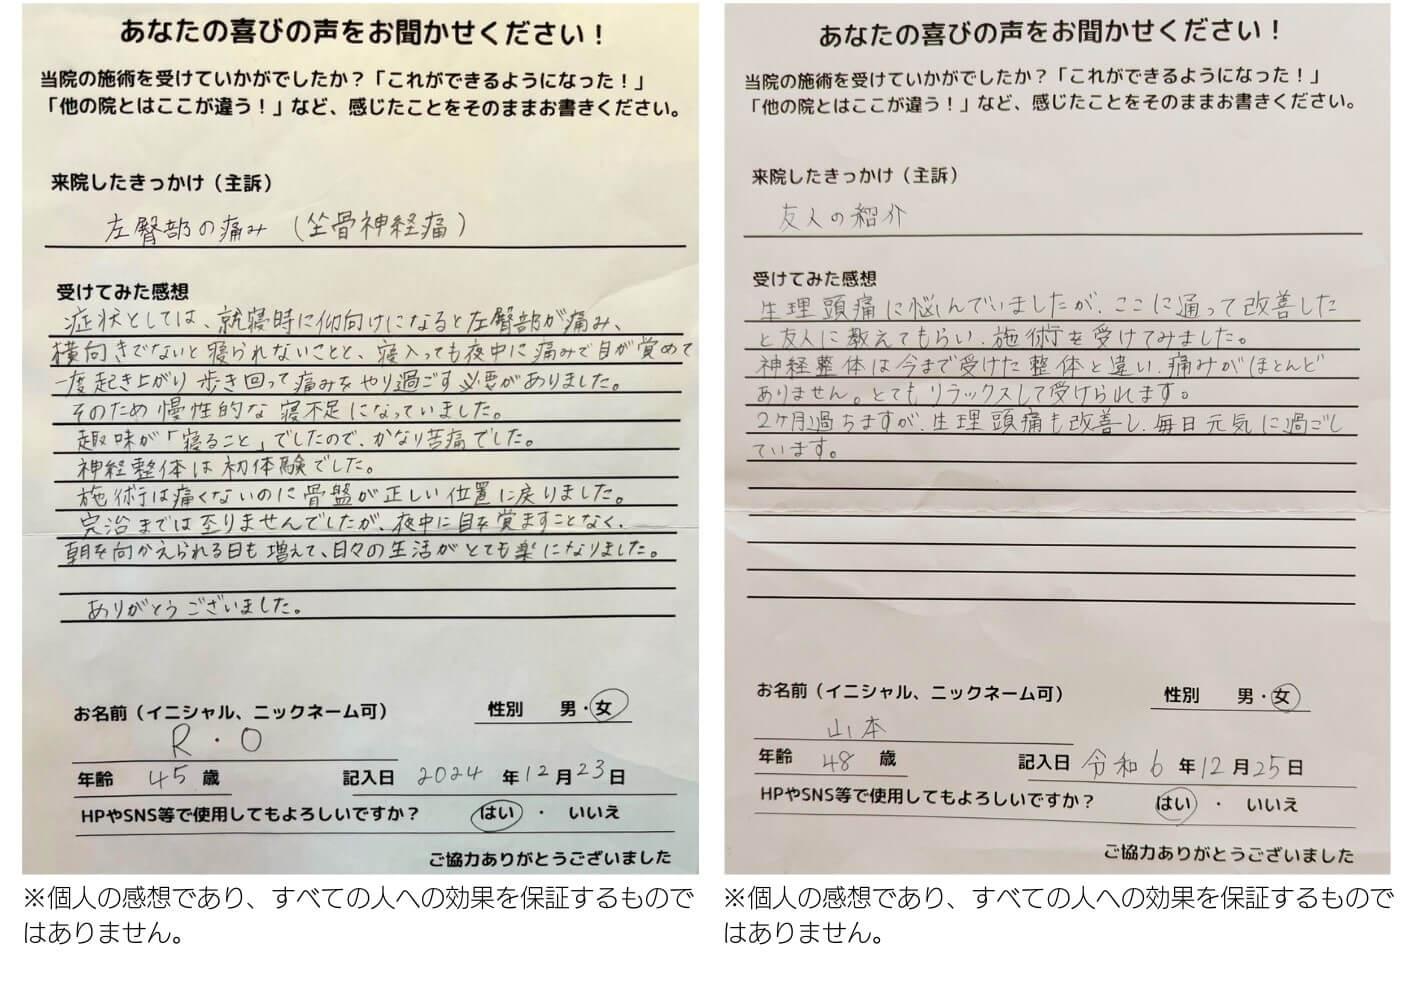 あなたの喜びの声をお聞かせください！
当院の施術を受けていかがでしたか？「これができるようになった！」
「他の院とはここが違う！」など、感じたことをそのままお書きください。
来院したきっかけ（主訴）
左臀部の痛み（坐骨神経痛）
受けてみた感想
症状としては、就寝時に仰向けになると左臀部が痛み、
横向きでないと寝られないことと、寝入っても夜中に痛みで目が覚めて
一度起き上がり歩き回って痛みをやり過ごす必要がありました。
そのため慢性的な寝不足になっていました。
趣味が「寝ること」でしたので、かなり苦痛でした。
神経整体は初体験でした。
施術は痛くないのに骨盤が正しい位置に戻りました。
完治までは至りませんでしたが、夜中に目を覚ますことなく、
朝を向かえられる日も増えて、日々の生活がとても楽になりました。
ありがとうございました。
お名前（イニシャル、ニックネーム可）
性別 男・女
R・O
年齢 45 歳
記入日 2024 年12月23日
HPやSNS等で使用してもよろしいですか？ はい ・ いいえ
ご協力ありがとうございました
※個人の感想であり、すべての人への効果を保証するもので
はありません。
あなたの喜びの声をお聞かせください！
当院の施術を受けていかがでしたか？「これができるようになった！」
「他の院とはここが違う！」など、感じたことをそのままお書きください。
来院したきっかけ（主訴）
友人の紹介
受けてみた感想
生理頭痛に悩んでいましたが、ここに通って改善した
と友人に教えてもらい、施術を受けてみました。
神経整体は今まで受けた整体と違い、痛みがほとんど
ありません。とてもリラックスして受けられます。
2ヶ月過ちますが、生理頭痛も改善し、毎日元気に過ごし
ています。
お名前（イニシャル、ニックネーム可）
性別 男・女
山本
年齢 48 歳
記入日 令和6 年12月25日
HPやSNS等で使用してもよろしいですか？ はい ・ いいえ
ご協力ありがとうございました
※個人の感想であり、すべての人への効果を保証するもので
はありません。